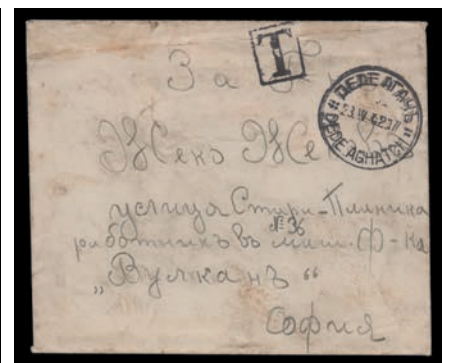 T
За
ДЕДЕАГАЧЪ
DEDEAGHATCH
Жеко Жеков
улица Стара-Планина
№36
работникъ въ маш. Ф-ка
„Вулканъ“
София